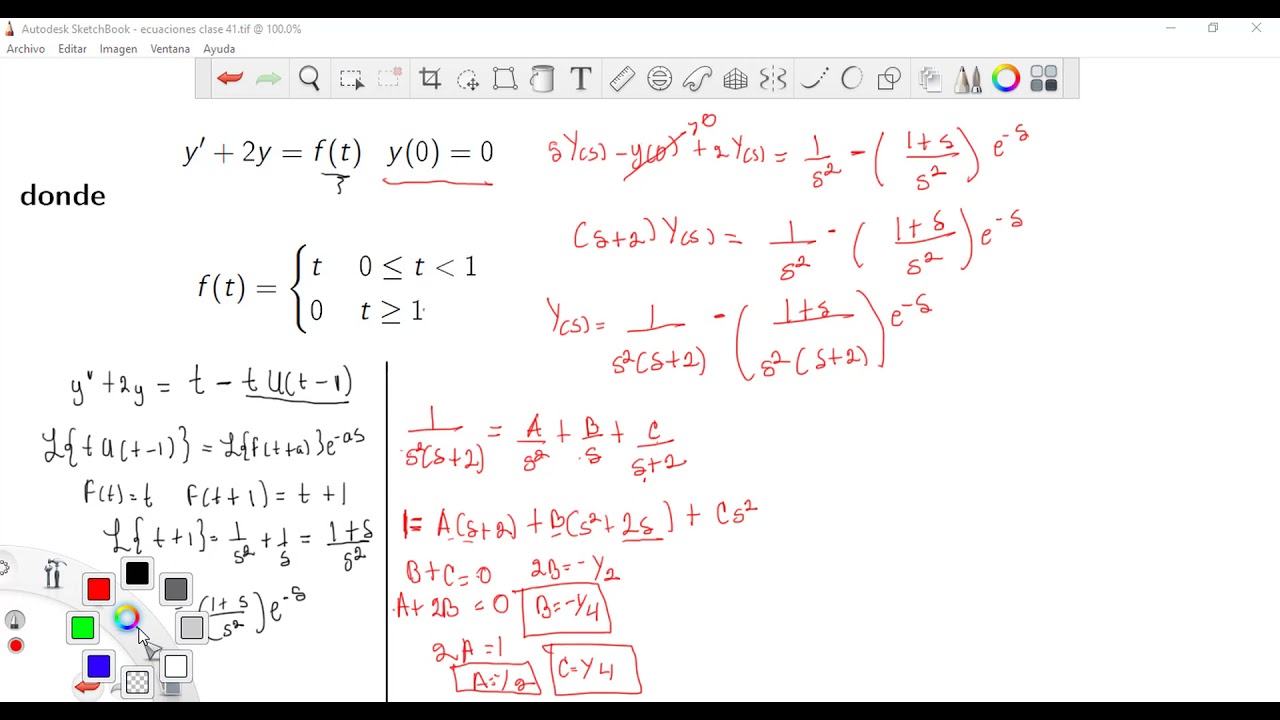 Autodesk SketchBook - ecuaciones clase 41.tif @ 100.0%
Archivo Editar Imagen Ventana Ayuda
T
y′ + 2y = f(t) y(0) = 0
donde
f(t) = { t 0 ≤ t < 1
0 t ≥ 1
y' + 2y = t - t U(t-1)
ℒ{t U(t-1)} = ℒ{f(t+a)}e^-as
f(t)=t f(t+1) = t+1
ℒ{t+1} = 1/s² + 1/s = (1+s)/s²
((1+s)/s²) e^-s
sY(s) - y(0) →0 + 2Y(s) = 1/s² - ((1+s)/s²) e^-s
(s+2)Y(s) = 1/s² - ((1+s)/s²) e^-s
Y(s) = 1/(s²(s+2)) - ((1+s)/(s²(s+2))) e^-s
1/(s²(s+2)) = A/s² + B/s + C/(s+2)
1 = A(s+2) + B(s²+2s) + Cs²
B+C=0 2B=-1/2
A+2B=0 B=-1/4
2A=1
A=1/2 C=1/4